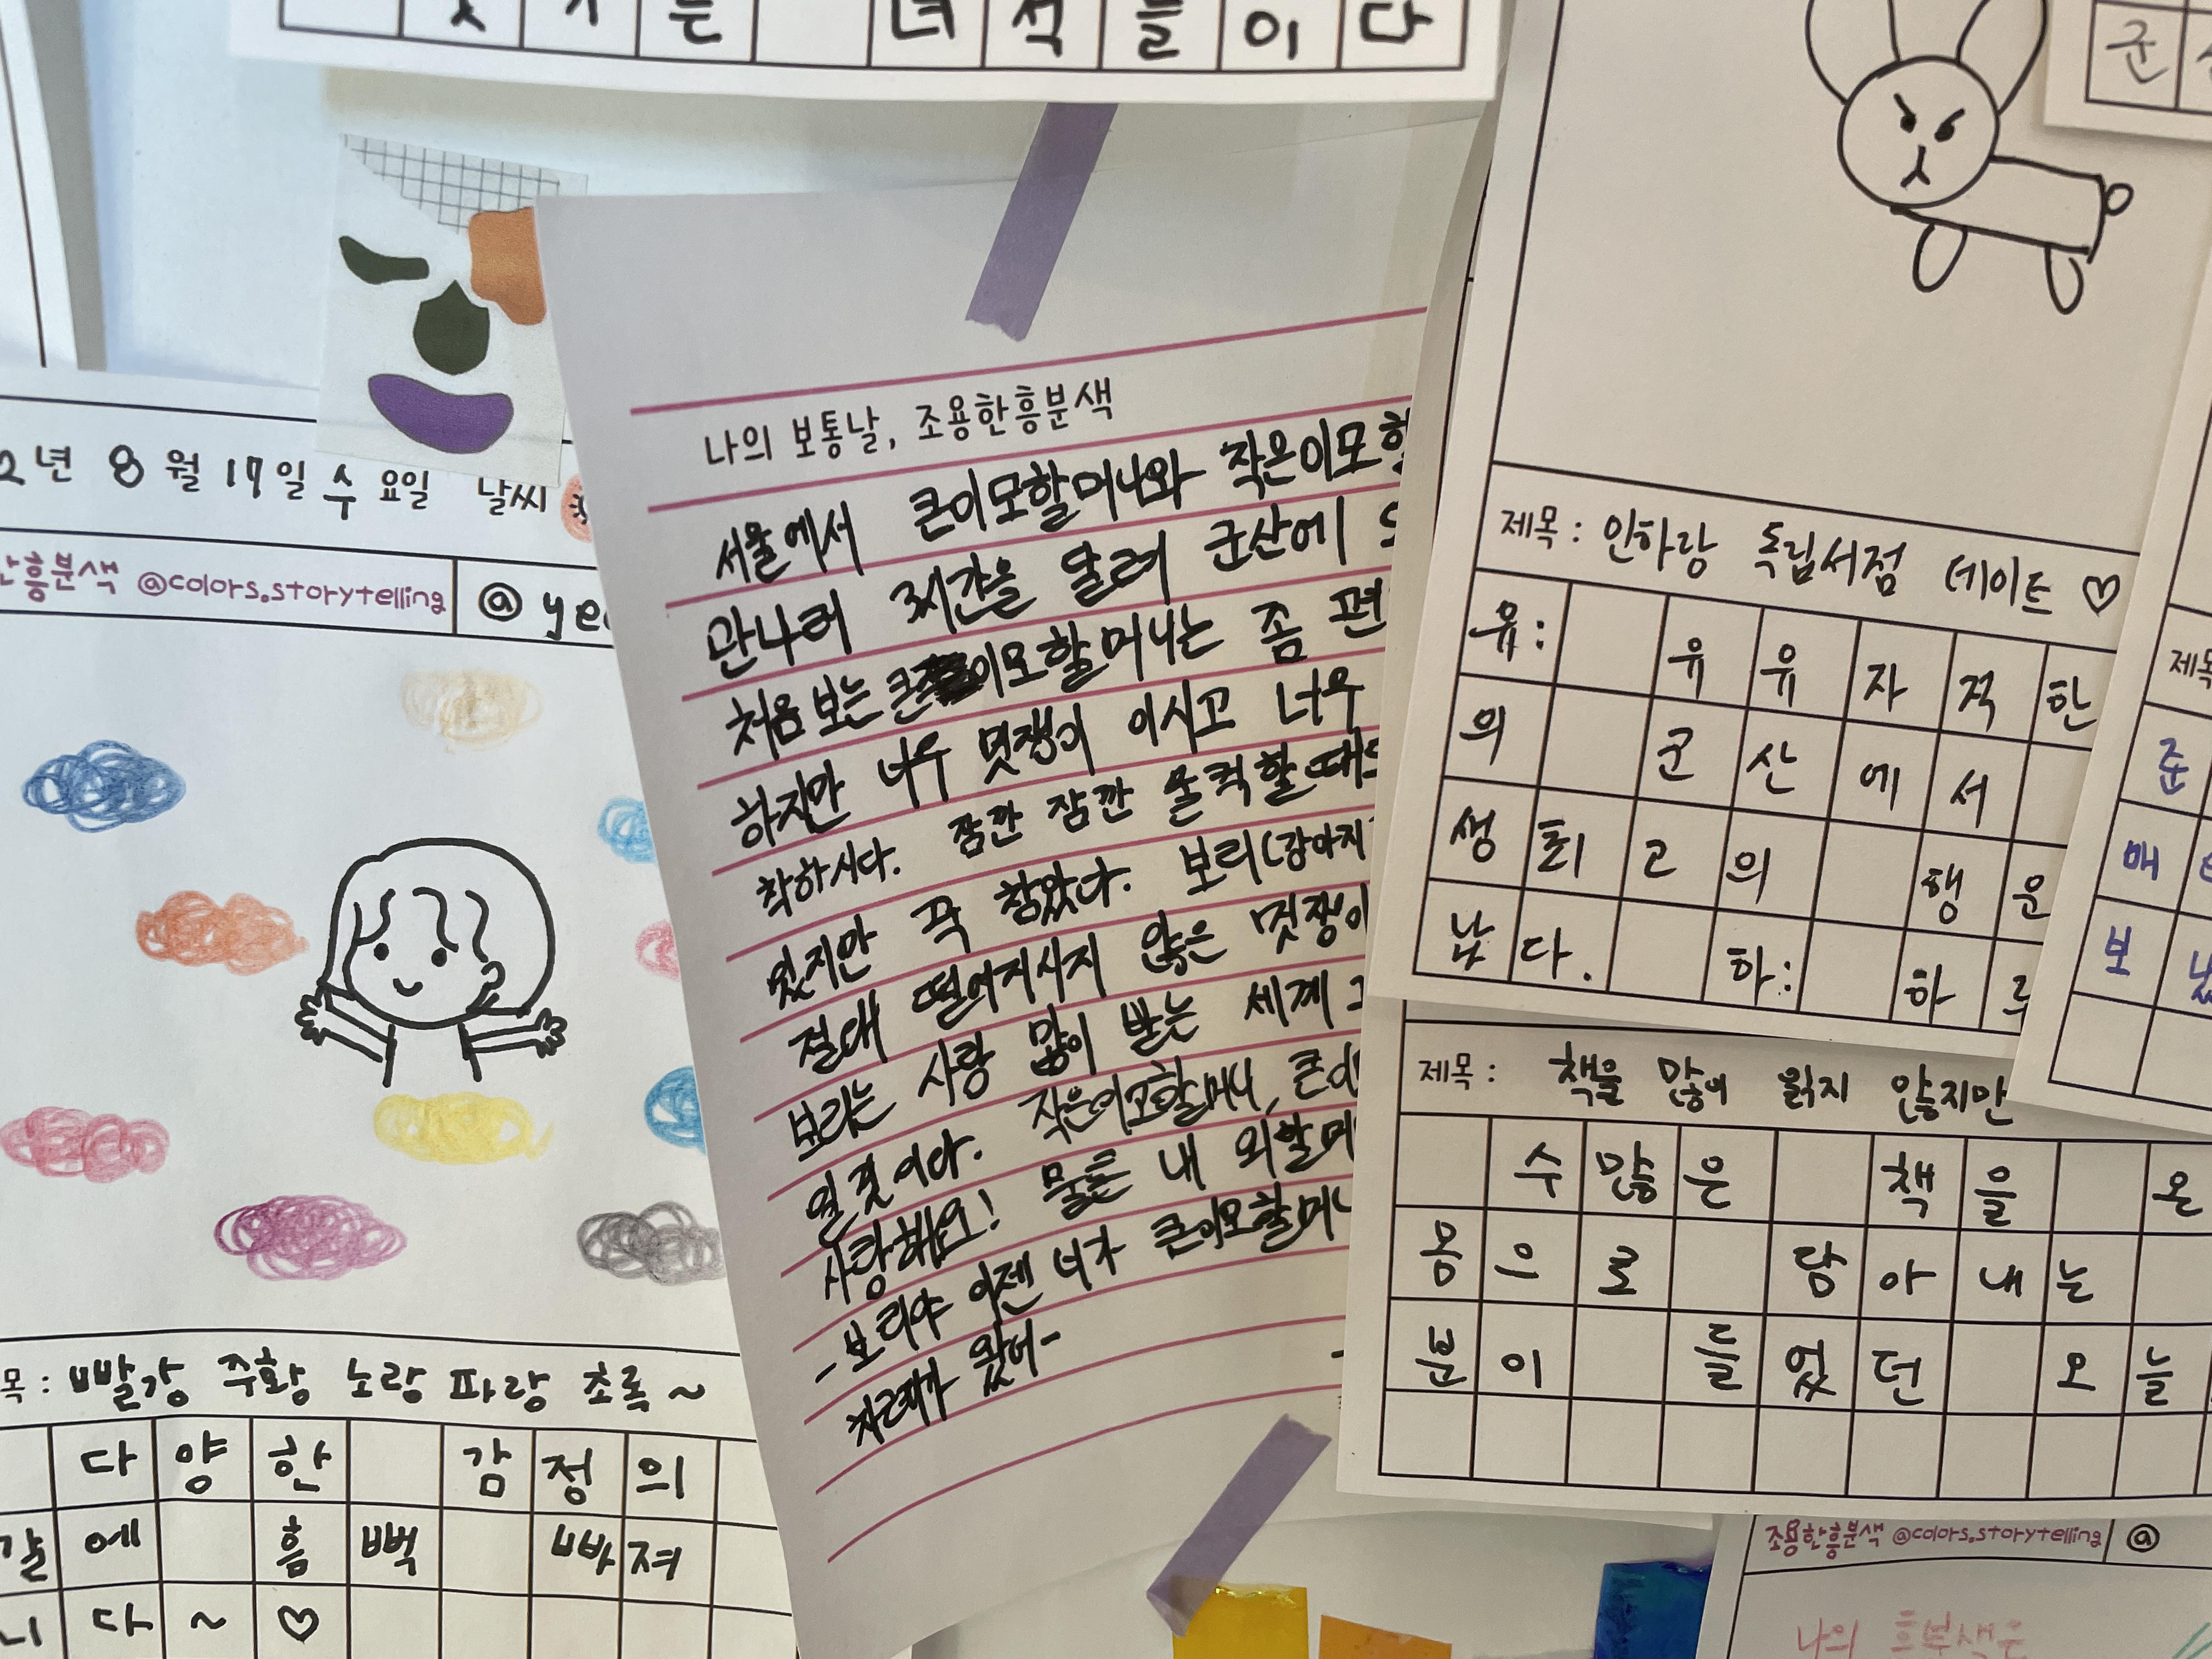 는 녀석들이다
2년 8월 17일 수요일 날씨
흥분색 @colors.storytelling @ye
목: 빨강 주황 노랑 파랑 초록~
다양한 감정의
갈에 흠뻑 빠져
니다~♡
나의 보통날, 조용한흥분색
서울에서 큰이모할머니와 작은이모할
만나러 3시간을 달려 군산에
처음 보는 큰 이모할머니는 좀
하지만 너무 멋쟁이 이시고 너무
착하시다. 잠깐 잠깐 울컥할때
있지만 꾹 참았다. 보리(강아지
절대 떨어지시지 않은 멋쟁이
보리는 사랑 많이 받는 세계
일것이다. 작은이모할머니, 큰이
사랑해요! 물론 내 외할머
-보리야 이젠 너가 큰이모할머니
차례가 왔어-
군
제목: 인하랑 독립서점 데이트♡
유: 유유자적한
의 군산에서
생 최고의 행운
났다. 하: 하루
제목: 책을 많이 읽지 않지만
수많은 책을 온
몸으로 담아내는
분이 들었던 오늘
제목
준
매
보
조용한흥분색 @colors.storytelling @
나의 흥분색은